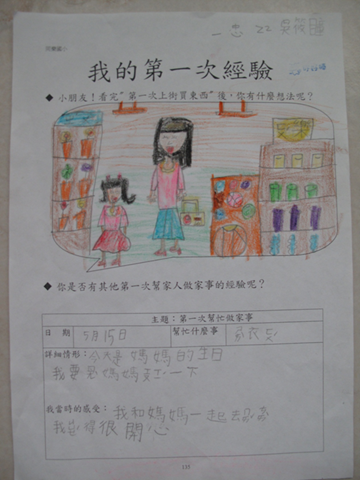 一忠 22 吳筱
我的第一次經驗
◆ 小朋友！看完"第一次上街買東西"後，你有什麼想法呢？
◆ 你是否有其他第一次幫家人做家事的經驗呢？
主題：第一次幫忙做家事
日 期 5月15日 幫忙什麼事
詳細情形：今天是媽媽的生日
我要 媽媽 一下
我當時的感受：我和媽媽一起去
我覺得很開心
131